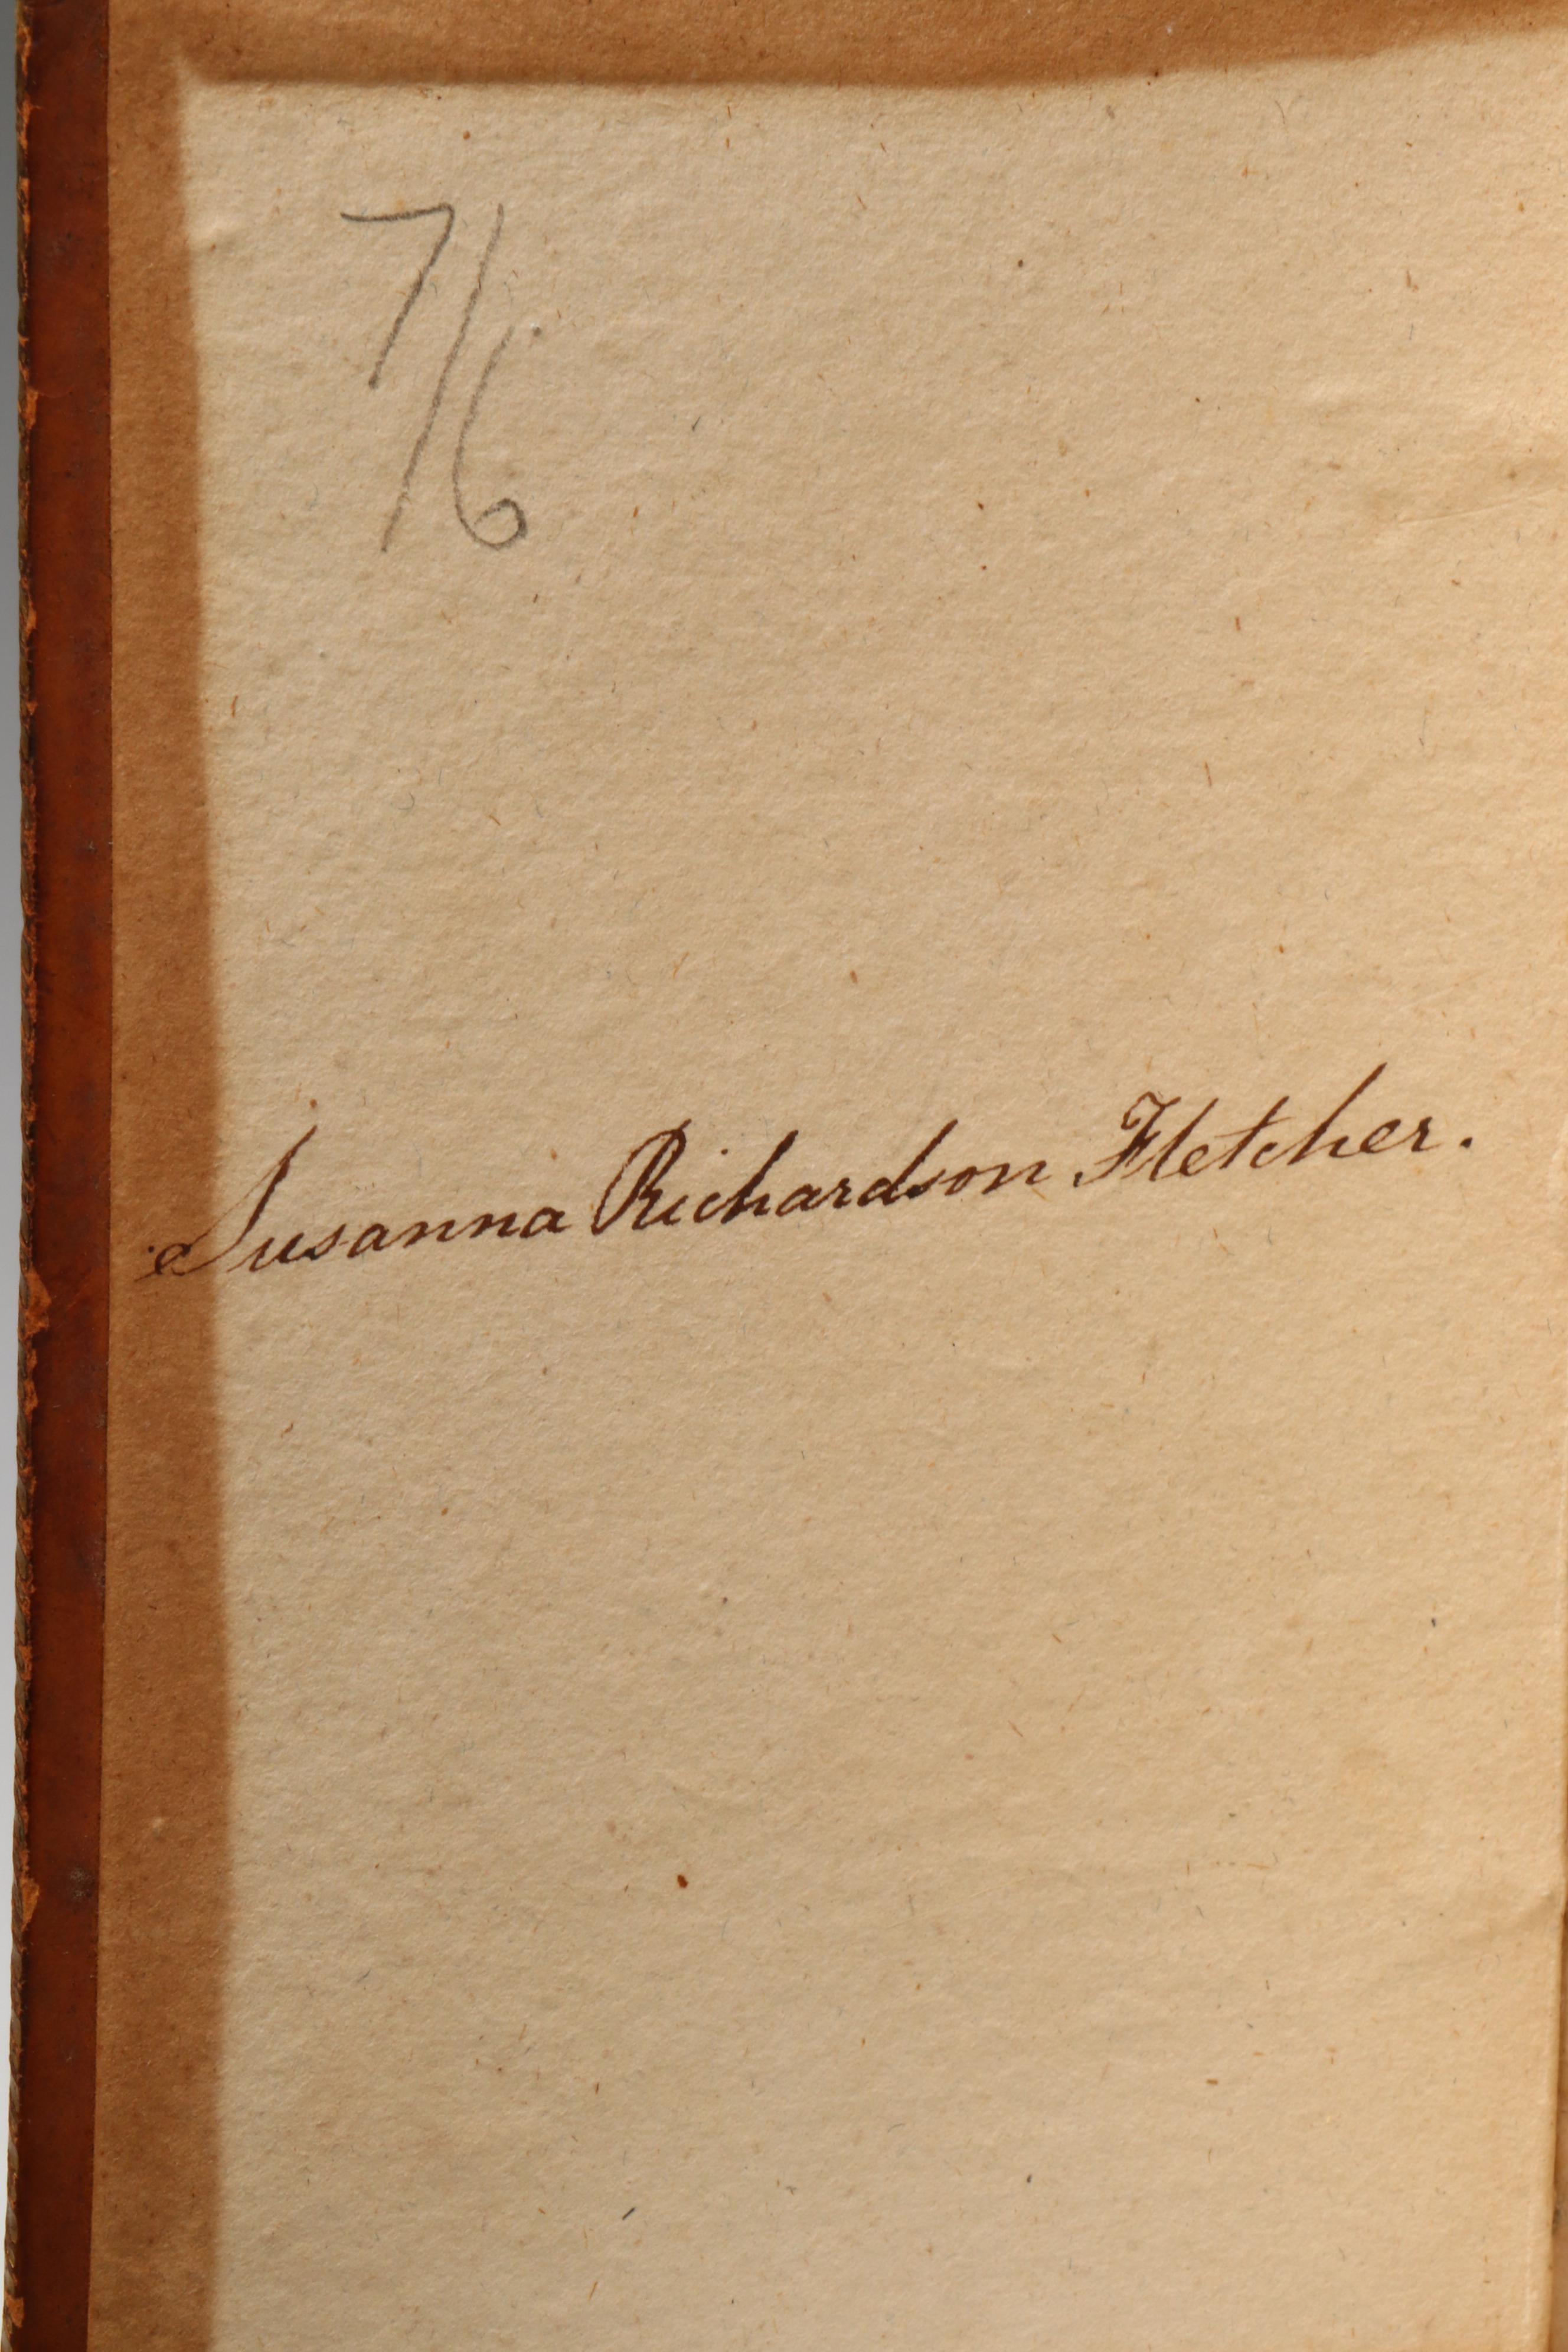 7/6
Susanna Richardson Fletcher.